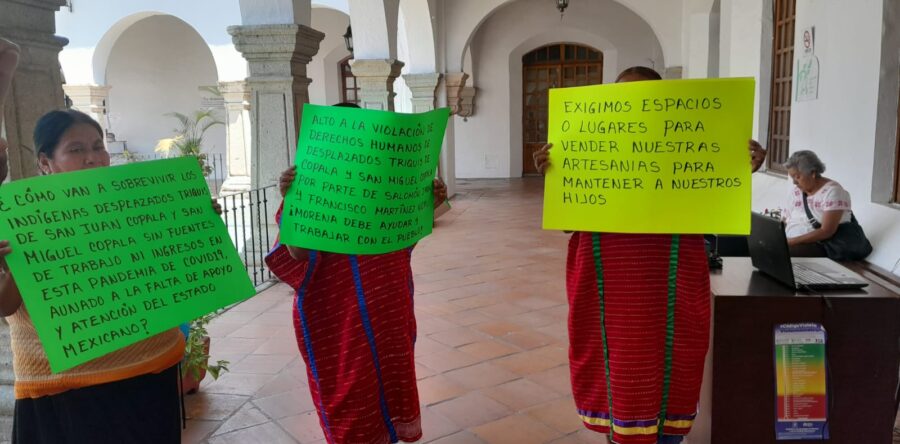 ¿CÓMO VAN A SOBREVIVIR LOS
INDÍGENAS DESPLAZADOS TRIQUIS
DE SAN JUAN COPALA Y SAN
MIGUEL COPALA SIN FUENTES
DE TRABAJO NI INGRESOS EN
ESTA PANDEMIA DE COVID19.
AUNADO A LA FALTA DE APOYO
Y ATENCIÓN DEL ESTADO
MEXICANO?
ALTO A LA VIOLACIÓN DE
DERECHOS HUMANOS DE
DESPLAZADOS TRIQUIS DE
COPALA Y SAN MIGUEL COPALA
POR PARTE DE SALOMÓN
Y FRANCISCO MARTÍNEZ
¡MORENA DEBE AYUDAR Y
TRABAJAR CON EL PUEBLO!
EXIGIMOS ESPACIOS
O LUGARES PARA
VENDER NUESTRAS
ARTESANIAS PARA
MANTENER A NUESTROS
HIJOS